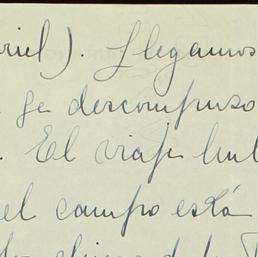 riel). Llegamos
se descompuso
. El viaje
el campo está